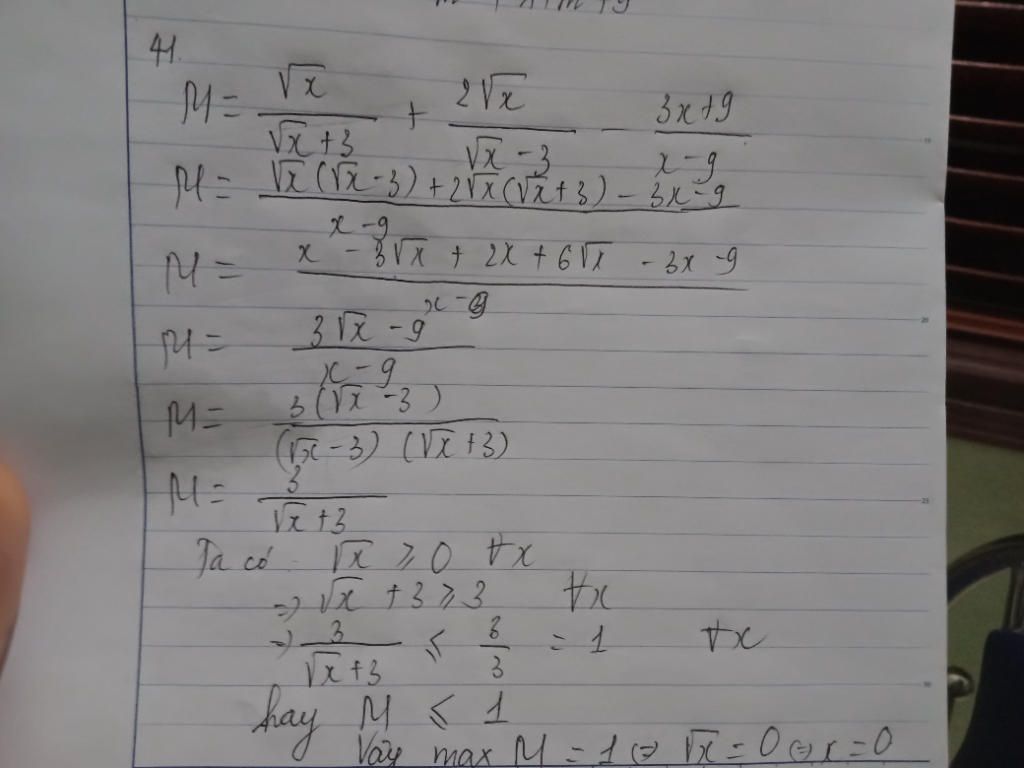 41.
M = √x / (√x + 3) + 2√x / (√x - 3) - (3x + 9) / (x - 9)
M = (√x (√x - 3) + 2√x (√x + 3) - 3x - 9) / (x - 9)
M = (x - 3√x + 2x + 6√x - 3x - 9) / (x - 9)
M = (3√x - 9) / (x - 9)
M = 3 (√x - 3) / ((√x - 3) (√x + 3))
M = 3 / (√x + 3)
Ta có √x ⩾ 0 ∀x
=> √x + 3 ⩾ 3 ∀x
=> 3 / (√x + 3) ⩽ 3/3 = 1 ∀x
hay M ⩽ 1
Vậy max M = 1 ⇔ √x = 0 ⇔ x = 0